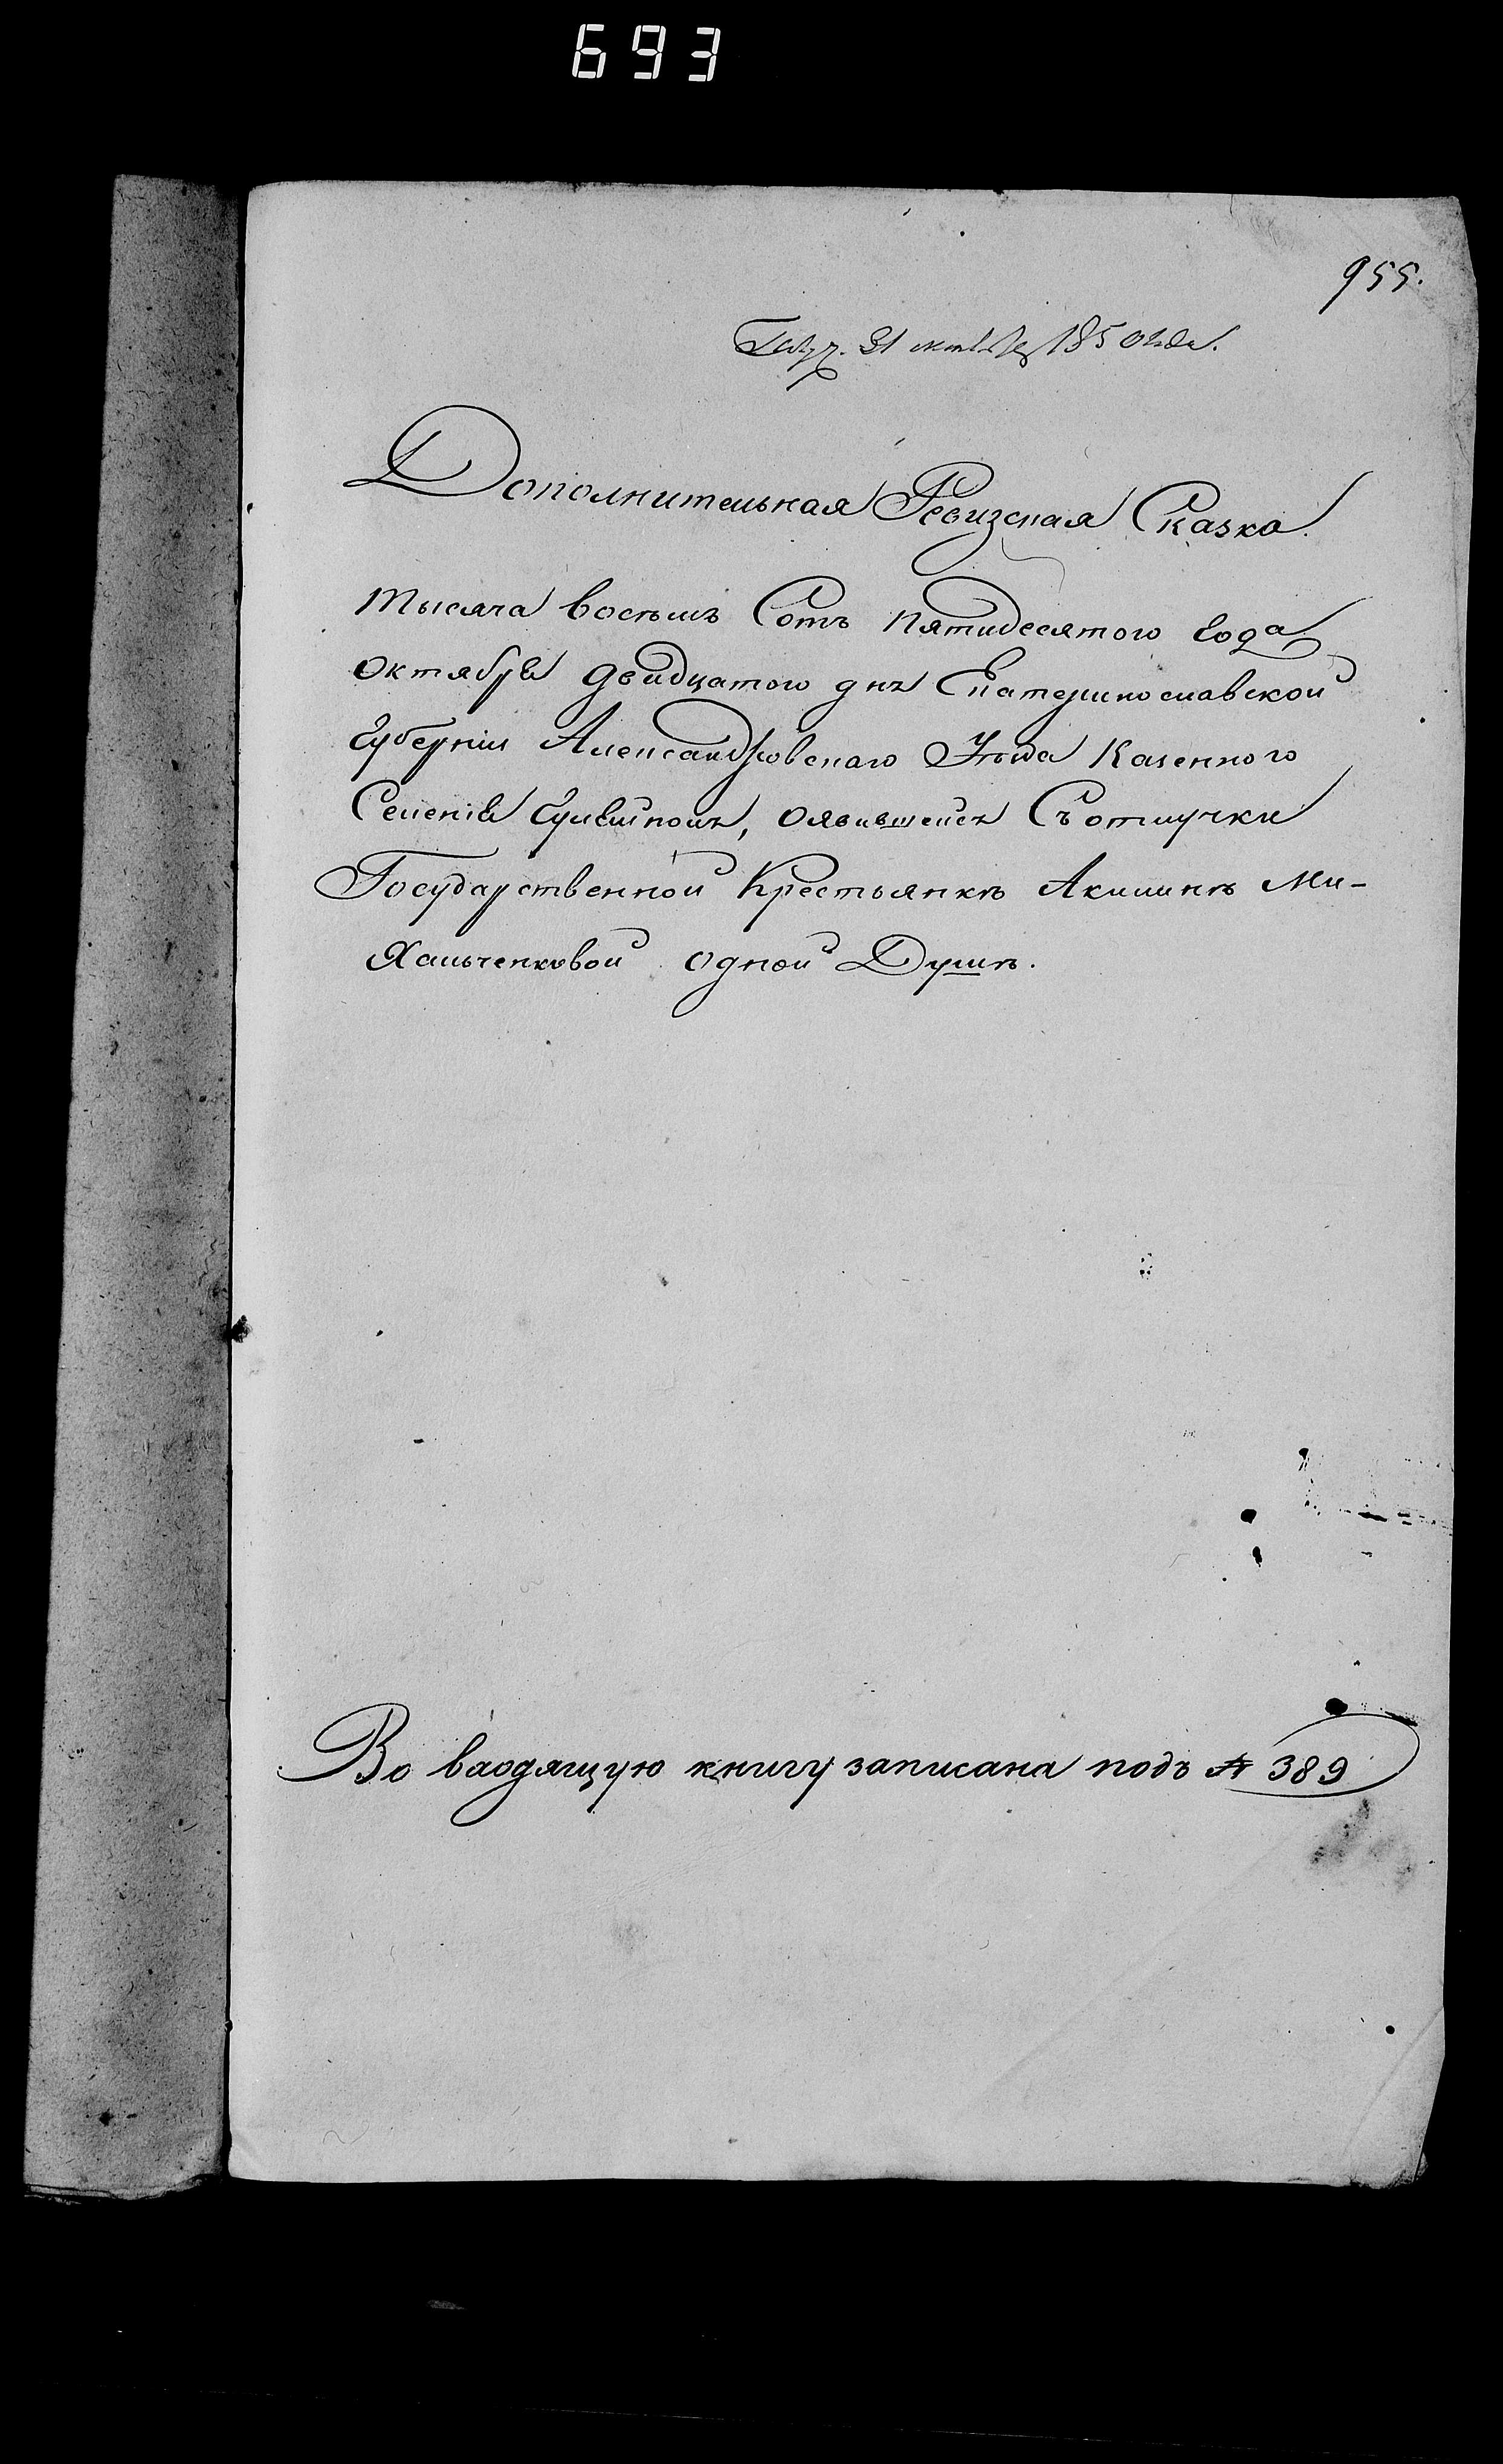 693
955.
Получ. 31 октября 1850 года.
Дополнительная Ревизская Сказка.
Тысяча восемь Сотъ пятидесятого года
октября двадцатого дня Екатеринославской
Губерніи Александровскаго Уезда Казенного
Селенія Гуляйполя, о явившейся Съ отлучки
Государственной Крестьянкѣ Акилинѣ Ми-
хальченковой одной Душѣ.
Во входящую книгу записана подъ № 389